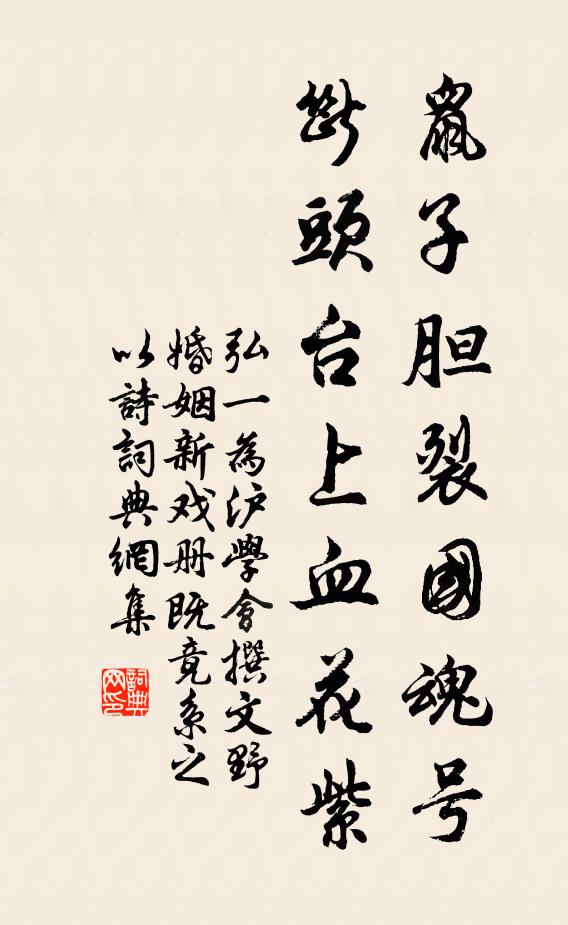 鼠子胆裂國魂号
斷頭台上血花紫
弘一為沪學會撰文野
婚姻新戏册既竟系之
以詩詞典網集
詞典
网印